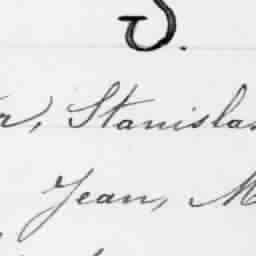 S.
r, Stanisla
Jean, M